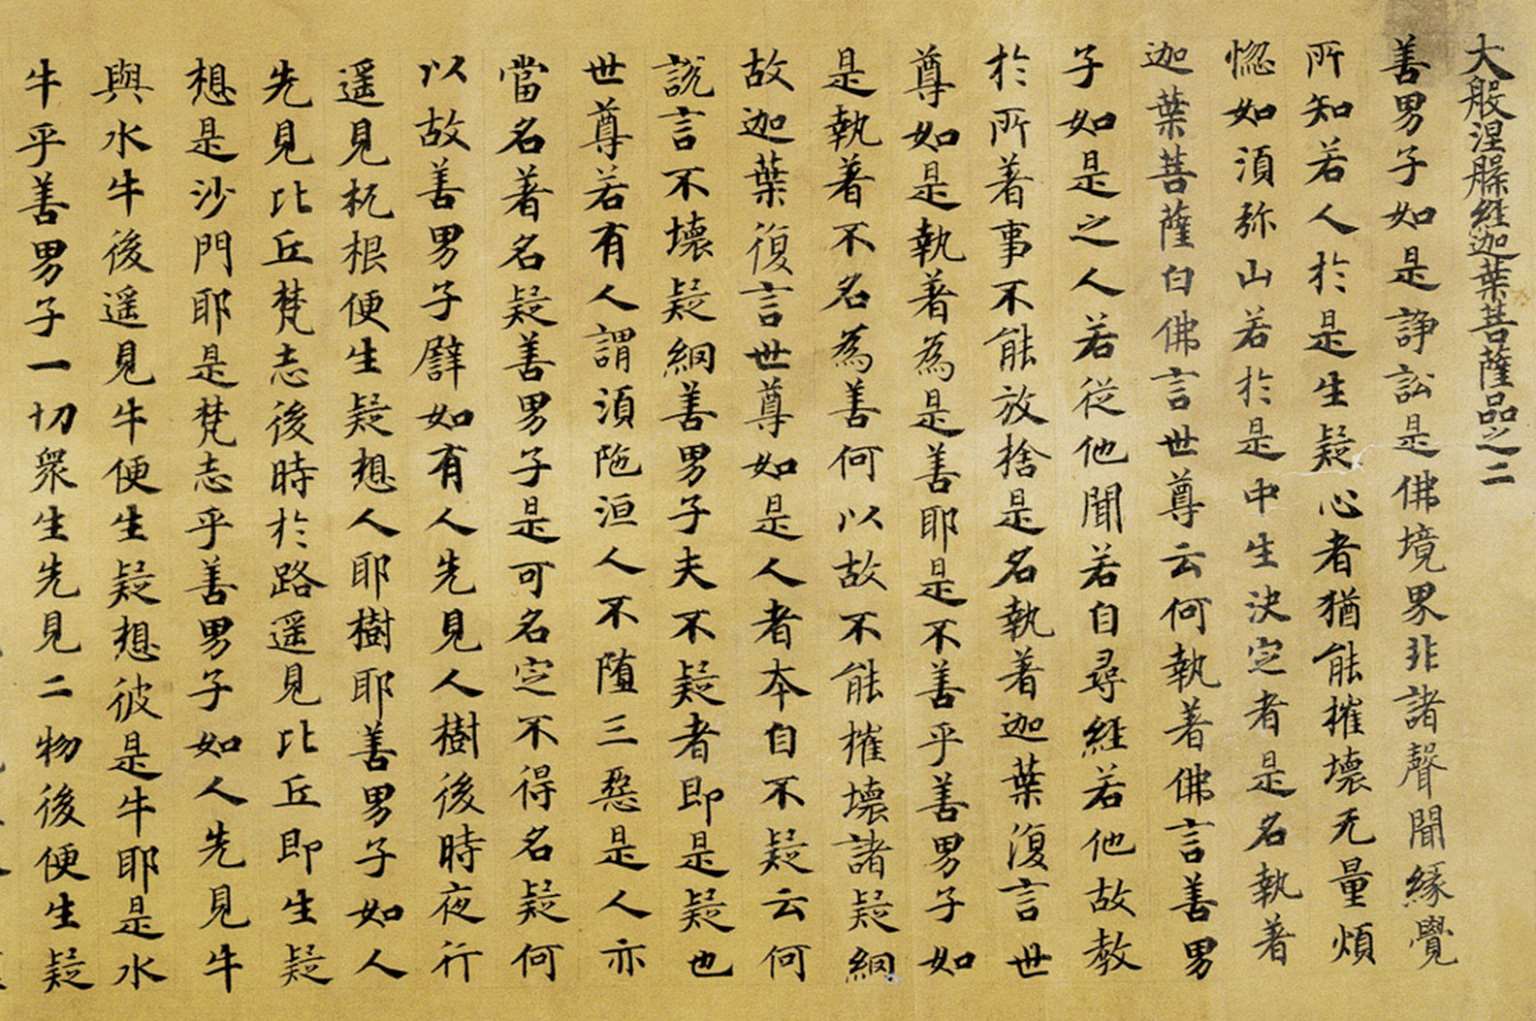 大般涅槃経迦葉菩薩品之二
善男子如是諍訟是佛境界非諸聲聞緣覺
所知若人於是生疑心者猶能摧壞无量煩
惚如湏弥山若於是中生決定者是名執著
迦葉菩薩白佛言世尊云何執著佛言善男
子如是之人若従他聞若自尋経若他故教
於所著事不能放捨是名執著迦葉復言世
尊如是執著為是善耶是不善乎善男子如
是執著不名為善何以故不能摧壞諸疑網
故迦葉復言世尊如是人者本自不疑云何
說言不壞疑網善男子夫不疑者即是疑也
世尊若有人謂湏陁洹人不墮三惡是人亦
當名著名疑善男子是可名定不得名疑何
以故善男子譬如有人先見人樹後時夜行
遥見杌根便生疑想人耶樹耶善男子如人
先見比丘梵志後時於路遥見比丘即生疑
想是沙門耶是梵志乎善男子如人先見牛
與水牛後遥見牛便生疑想彼是牛耶是水
牛乎善男子一切衆生先見二物後便生疑